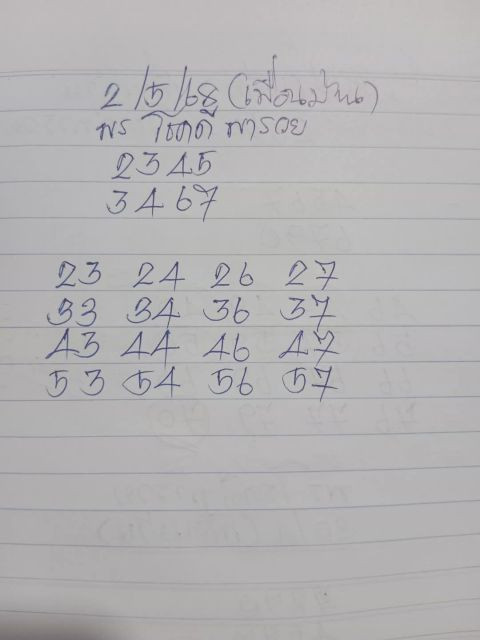 2/5/68 (เพื่อนบ้าน)
พร โชคดี พารวย
2345
3467
23 24 26 27
33 34 36 37
43 44 46 47
53 54 56 57